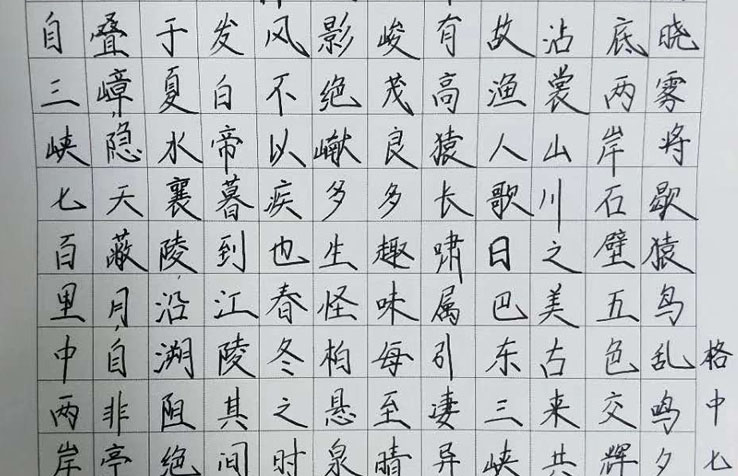 自三峡七百里中两岸
叠嶂隐天蔽月自非亭
于夏水襄陵沿溯阻绝
发白帝暮到江陵其间
风不以疾也春冬之时
影绝巘多生怪柏悬泉
峻茂良多趣味每至晴
有高猿长啸属引凄异
故渔人歌曰巴东三峡
沾裳山川之美古来共
底两岸石壁五色交辉
晓雾将歇猿鸟乱鸣夕
格中七